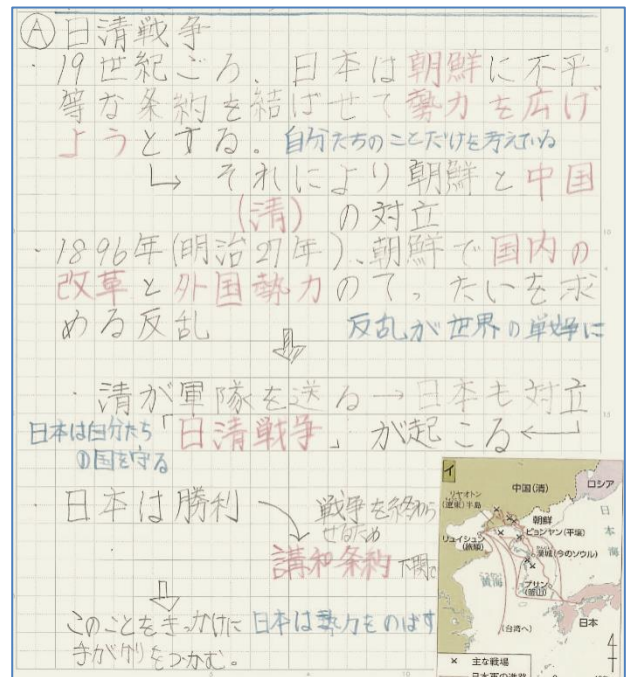 Ⓐ日清戦争
・19世紀ごろ、日本は朝鮮に不平
等な条約を結ばせて勢力を広げ
ようとする。自分たちのことだけを考えている
↳それにより朝鮮と中国
(清)の対立
・1896年(明治27年)、朝鮮で国内の
改革と外国勢力のてったいを求
める反乱 反乱が世界の戦争に
⇩
・清が軍隊を送る→日本も対立
日本は自分たち
の国を守る
「日清戦争」が起こる←
日本は勝利
戦争を終わら
せるため
講和条約 下関で
⇩
このことをきっかけに日本は勢力をのばす
きがかりをつかむ。
イ
中国(清)
ロシア
リヤオトン
(遼東)半島
朝鮮
ピョンヤン(平壌)
リュイシュン
(旅順)
漢城(今のソウル)
日本海
黄海
プサン
(釜山)
(台湾へ)
日本
× 主な戦場
日本軍の進路